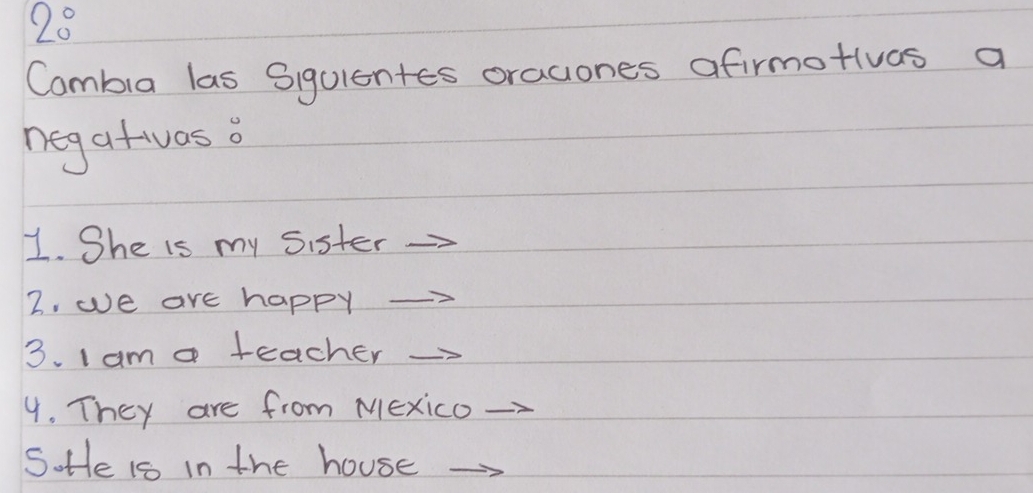 2:
Cambia las siguientes oraciones afirmativas a
negativas:
1. She is my sister →
2. we are happy →
3. I am a teacher →
4. They are from Mexico →
5. He is in the house →